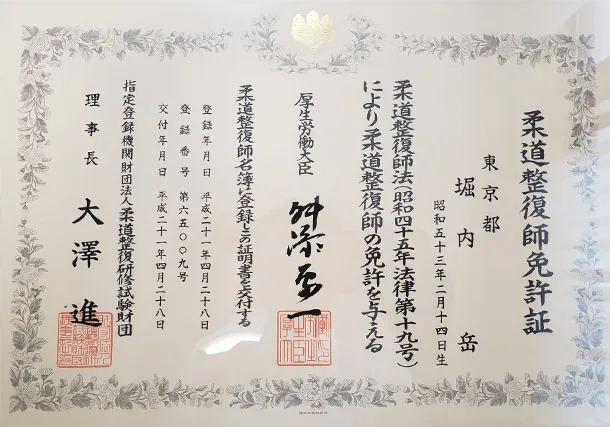 柔道整復師免許証
東京都
堀内 岳
昭和五十三年二月十四日生
柔道整復師法(昭和四十五年法律第十九号)
により柔道整復師の免許を与える
厚生労働大臣 舛添要一
柔道整復師名簿に登録しこの証明書を交付する
登録年月日 平成二十一年四月二十八日
登録番号 第六五〇〇九号
交付年月日 平成二十一年四月二十八日
指定登録機関財団法人柔道整復研修試験財団
理事長 大澤進